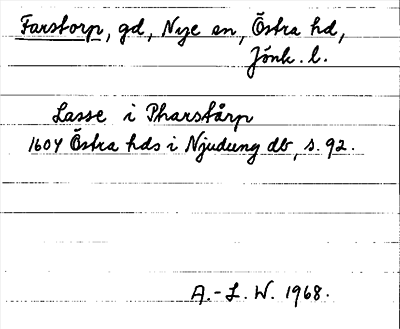 Farstorp, gd, Nye sn, Östra hd,
Jönk. l.
Lasse i Pharstårp
1604 Östra hds i Njudung db, s. 92.
A.-L. W. 1968.